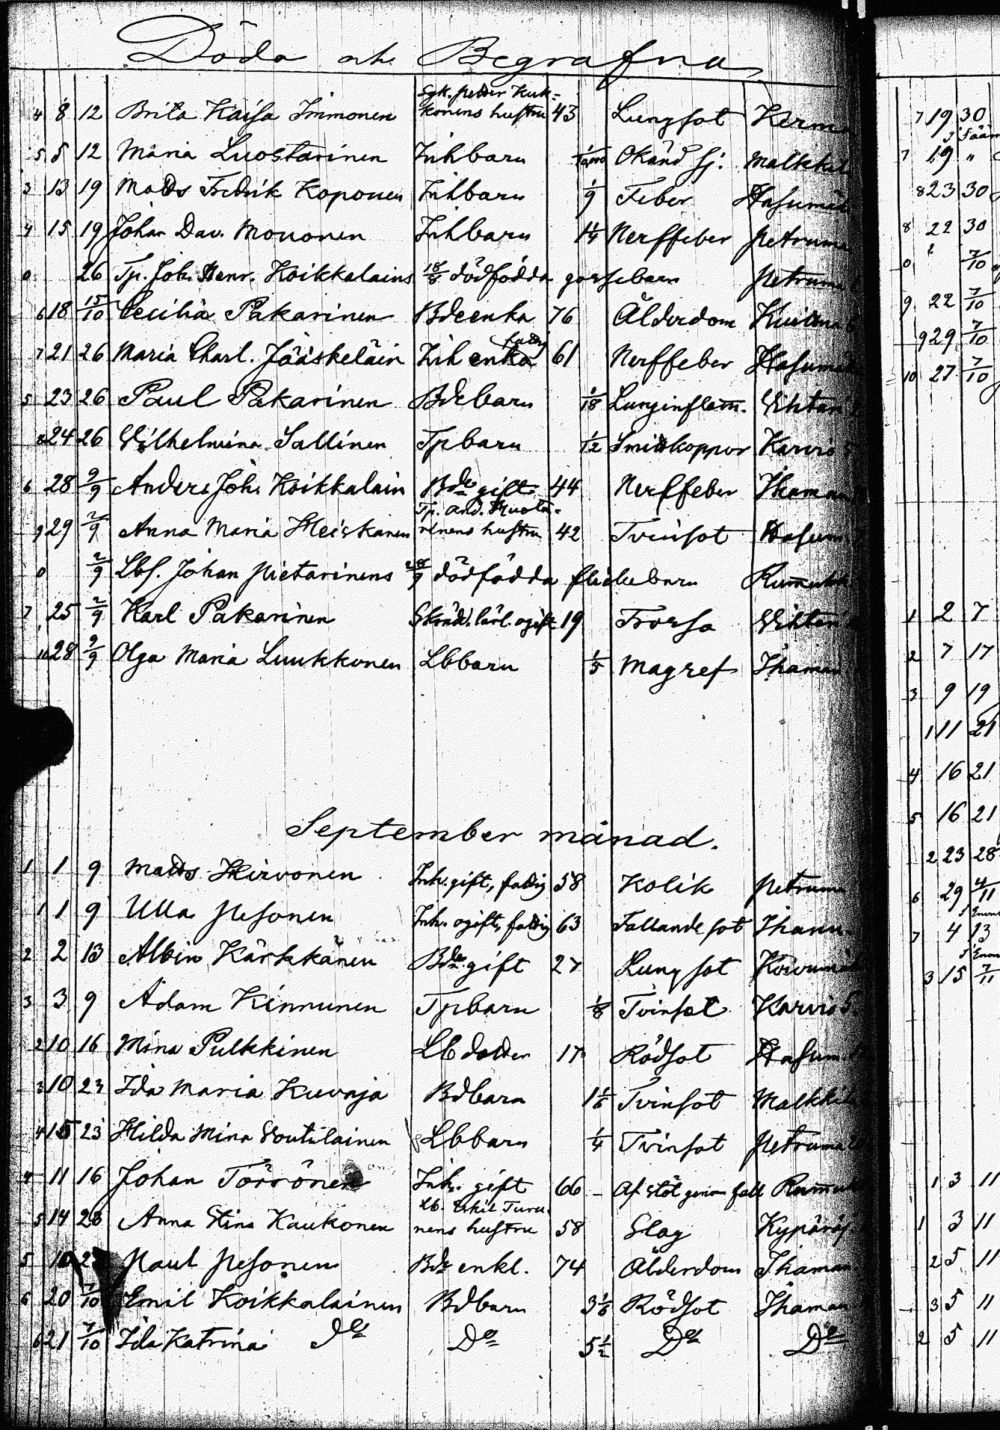 Döda och Begrafna
4 8 12 Brita Kaisa Immonen Sgk. Petter Kuk-
konens hustru 43 Lungsot Kerma
5 8 12 Maria Luostarinen Inhbarn Okänd sj: Malkkil
3 13 19 Mats Fredrik Koponen Inhbarn 1/9 Feber Hasumä
4 15 19 Johan Dav. Mononen Inhbarn 1 1/4 Nerffeber Petruma
0 26 Tp. Joh. Henr. Koikkalains 18/8 dödfödda gossebarn Petruma
6 18 15/10 Cecilia Pakarinen Bdeenka 76 Ålderdom
7 21 26 Maria Charl. Jääskeläin Inhenka fattig 61 Nerffeber Hasumä
5 23 26 Paul Pakarinen Bdebarn 1/18 Lunginflam. Vihtari
8 24 26 Wilhelmina Sallinen Tpbarn 1/12 Smittkoppor Karvio
6 28 9/9 Anders Joh. Koikkalain Bde gift 44 Nerffeber Ihaman
9 29 2/9 Anna Maria Heiskanen Tp. And. Kuosta-
rinens hustru 42 Tvinsot Hasum
0 2/9 Lbf. Johan Pietarinens 28/9 dödfödda flickebarn Rummuk
7 25 2/9 Karl Pakarinen Skräd. lärl. ogift 19 Trossa Vihtari
10 28 9/9 Olga Maria Luukkonen Lbbarn 1/5 Magref Ihaman
September månad.
1 1 9 Mats Hirvonen Inh. gift, fattig 58 Kolik Petruma
1 1 9 Ulla Pesonen Inh. ogift, fattig 63 Fallandesot Iham
2 2 13 Albin Kärkkänen Bde gift 27 Lungsot Koivumä
3 3 9 Adam Kinnunen Tpbarn 1/8 Tvinsot Karvio S.
2 10 16 Mina Pulkkinen Lb dotter 17 Rödsot Hasum
3 10 23 Ida Maria Kuvaja Bdbarn 1 1/6 Tvinsot Malkkil
4 15 23 Hilda Mina Voutilainen Lbbarn 1/4 Tvinsot Petruma
4 11 16 Johan Törrönen Inh. gift 66 Af stöt genom fall Rummuk
5 14 23 Anna Stina Kaukonen Lb. Erkil Turu-
nens hustru 58 Slag Kypäräj
5 10 23 Paul Pesonen Bde enkl. 74 Ålderdom Ihaman
6 20 7/10 Emil Koikkalainen Bdbarn 3 1/8 Rödsot Ihaman
6 21 7/10 Ida Katrina Do Do 5 1/2 Do Do
7 19 30
7 19 "
8 23 30
8 22 30
0 7/10
9 22 7/10
9 29 7/10
10 27 7/10
1 2 7
2 7 17
3 9 19
1 11 21
4 16 21
5 16 21
2 23 28
6 29 4/11
7 4 13
3 15 7/11
1 3 11
1 3 11
2 5 11
3 5 11
2 5 11